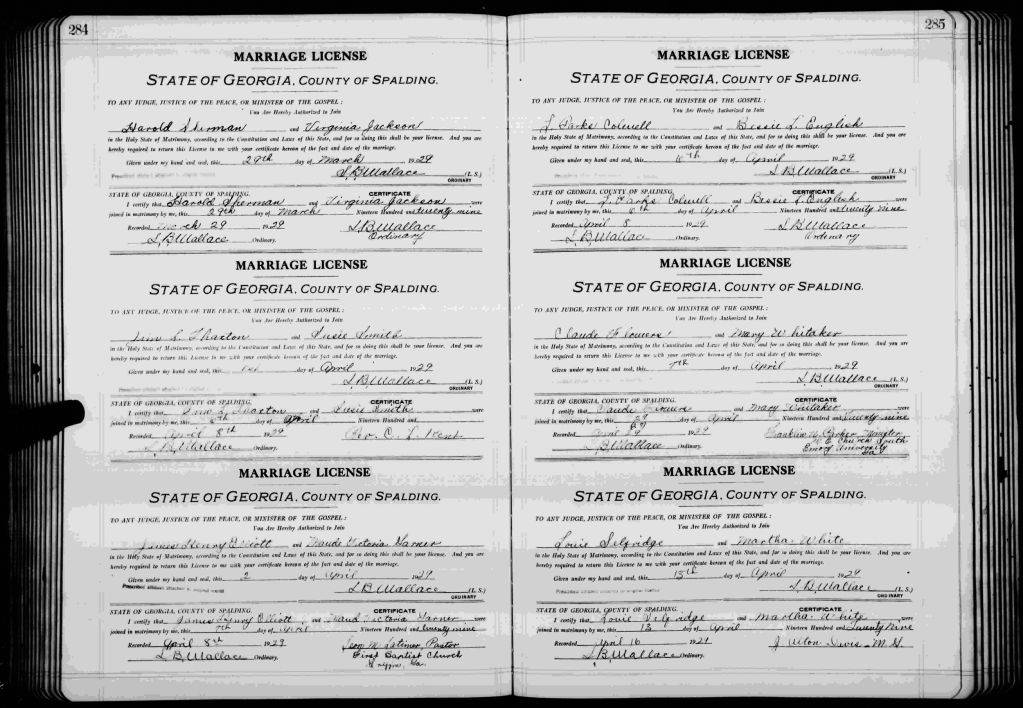 284
MARRIAGE LICENSE
STATE OF GEORGIA, COUNTY OF SPALDING.
TO ANY JUDGE, JUSTICE OF THE PEACE, OR MINISTER OF THE GOSPEL:
You Are Hereby Authorized to Join
Harold Sherman and Virginia Jackson
in the Holy State of Matrimony, according to the Constitution and Laws of this State, and for so doing this shall be your license. And you are
hereby required to return this License to me with your certificate hereon of the fact and date of the marriage.
Given under my hand and seal, this 29th day of March 1929
S. B. Wallace (L. S.)
ORDINARY
STATE OF GEORGIA, COUNTY OF SPALDING. CERTIFICATE
I certify that Harold Sherman and Virginia Jackson were
joined in matrimony by me, this 29th day of March Nineteen Hundred and twenty nine
Recorded March 29 1929 S. B. Wallace
S. B. Wallace Ordinary. Ordinary
MARRIAGE LICENSE
STATE OF GEORGIA, COUNTY OF SPALDING.
TO ANY JUDGE, JUSTICE OF THE PEACE, OR MINISTER OF THE GOSPEL:
You Are Hereby Authorized to Join
L. Thaxton and Susie Smith
in the Holy State of Matrimony, according to the Constitution and Laws of this State, and for so doing this shall be your license. And you are
hereby required to return this License to me with your certificate hereon of the fact and date of the marriage.
Given under my hand and seal, this day of April 1929
S. B. Wallace (L. S.)
ORDINARY
STATE OF GEORGIA, COUNTY OF SPALDING. CERTIFICATE
I certify that L. Thaxton and Susie Smith were
joined in matrimony by me, this 8th day of April Nineteen Hundred and
Recorded April 8th 1929 Rev. C. S.
S. B. Wallace Ordinary.
MARRIAGE LICENSE
STATE OF GEORGIA, COUNTY OF SPALDING.
TO ANY JUDGE, JUSTICE OF THE PEACE, OR MINISTER OF THE GOSPEL:
You Are Hereby Authorized to Join
James Henry Elliott and Maude Victoria Garner
in the Holy State of Matrimony, according to the Constitution and Laws of this State, and for so doing this shall be your license. And you are
hereby required to return this License to me with your certificate hereon of the fact and date of the marriage.
Given under my hand and seal, this 2 day of April 1929
S. B. Wallace (L. S.)
ORDINARY
STATE OF GEORGIA, COUNTY OF SPALDING. CERTIFICATE
I certify that James Henry Elliott and Maud Victoria Garner were
joined in matrimony by me, this 7th day of April Nineteen Hundred and twenty nine
Recorded April 8th 1929 Leon M. Latimer, Pastor
S. B. Wallace Ordinary. First Baptist Church
Griffin, Ga.
285
MARRIAGE LICENSE
STATE OF GEORGIA, COUNTY OF SPALDING.
TO ANY JUDGE, JUSTICE OF THE PEACE, OR MINISTER OF THE GOSPEL:
You Are Hereby Authorized to Join
J. Parks Colwell and Bessie L. English
in the Holy State of Matrimony, according to the Constitution and Laws of this State, and for so doing this shall be your license. And you are
hereby required to return this License to me with your certificate hereon of the fact and date of the marriage.
Given under my hand and seal, this day of April 1929
S. B. Wallace (L. S.)
ORDINARY
STATE OF GEORGIA, COUNTY OF SPALDING. CERTIFICATE
I certify that J. Parks Colwell and Bessie L. English were
joined in matrimony by me, this day of April Nineteen Hundred and twenty nine
Recorded April 8 1929 S. B. Wallace
S. B. Wallace Ordinary. Ordinary
MARRIAGE LICENSE
STATE OF GEORGIA, COUNTY OF SPALDING.
TO ANY JUDGE, JUSTICE OF THE PEACE, OR MINISTER OF THE GOSPEL:
You Are Hereby Authorized to Join
Claude Flowers and Mary Whitaker
in the Holy State of Matrimony, according to the Constitution and Laws of this State, and for so doing this shall be your license. And you are
hereby required to return this License to me with your certificate hereon of the fact and date of the marriage.
Given under my hand and seal, this 7th day of April 1929
S. B. Wallace (L. S.)
ORDINARY
STATE OF GEORGIA, COUNTY OF SPALDING. CERTIFICATE
I certify that Claude Flowers and Mary Whitaker were
joined in matrimony by me, this day of April Nineteen Hundred and twenty nine
Recorded April 9 1929 Franklin N. Parker, Minister
S. B. Wallace Ordinary. M. E. Church South
Emory University
Ga
MARRIAGE LICENSE
STATE OF GEORGIA, COUNTY OF SPALDING.
TO ANY JUDGE, JUSTICE OF THE PEACE, OR MINISTER OF THE GOSPEL:
You Are Hereby Authorized to Join
Louie Selfridge and Martha White
in the Holy State of Matrimony, according to the Constitution and Laws of this State, and for so doing this shall be your license. And you are
hereby required to return this License to me with your certificate hereon of the fact and date of the marriage.
Given under my hand and seal, this 13th day of April 1929
S. B. Wallace (L. S.)
ORDINARY
STATE OF GEORGIA, COUNTY OF SPALDING. CERTIFICATE
I certify that Louie Selfridge and Martha White were
joined in matrimony by me, this 13 day of April Nineteen Hundred and Twenty Nine
Recorded April 16 1929 J. Alton Davis M. G.
S. B. Wallace Ordinary.